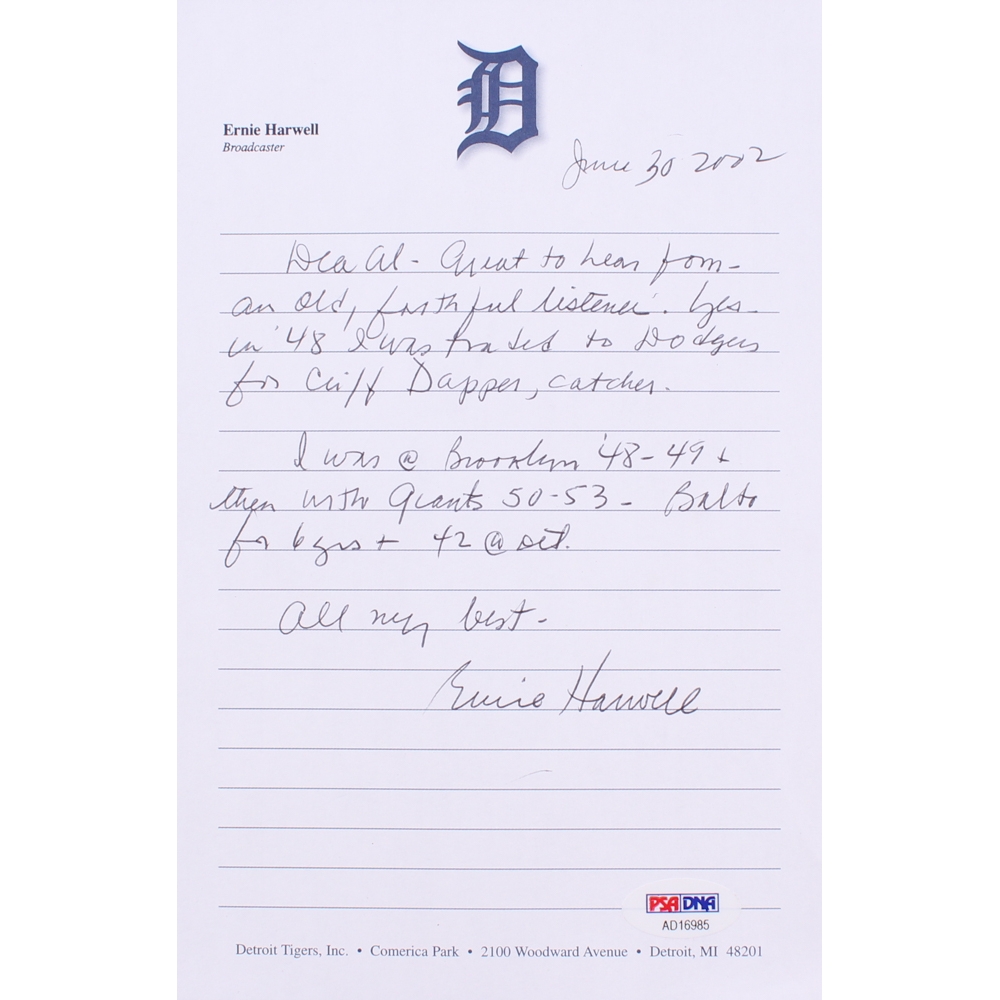 D
Ernie Harwell
Broadcaster
June 30 2002
Dea Al - Great to hear from -
an old, faithful listener. Yes -
in '48 I was traded to Dodgers
for Cliff Dapper, catcher.
I was @ Brooklyn '48-49 +
then with Giants 50-53 - Balto
for 6 yrs + 42 @ Det.
All my best -
Ernie Harwell
PSA DNA
AD16985
Detroit Tigers, Inc. • Comerica Park • 2100 Woodward Avenue • Detroit, MI 48201